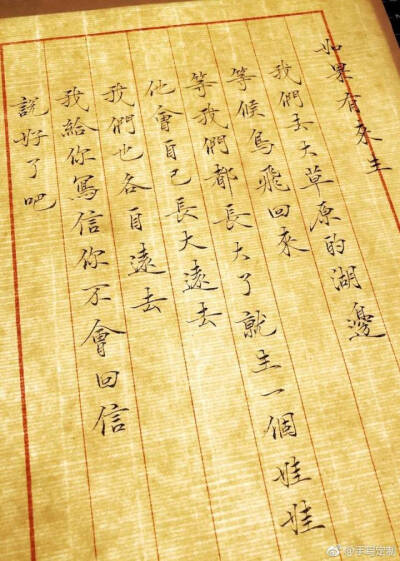 如果有來生
我們去大草原的湖邊
等候鳥飛回來
等我們都長大了就生一個娃娃
他會自己長大遠去
我們也各自遠去
我給你寫信你不會回信
說好了吧
@手寫定制